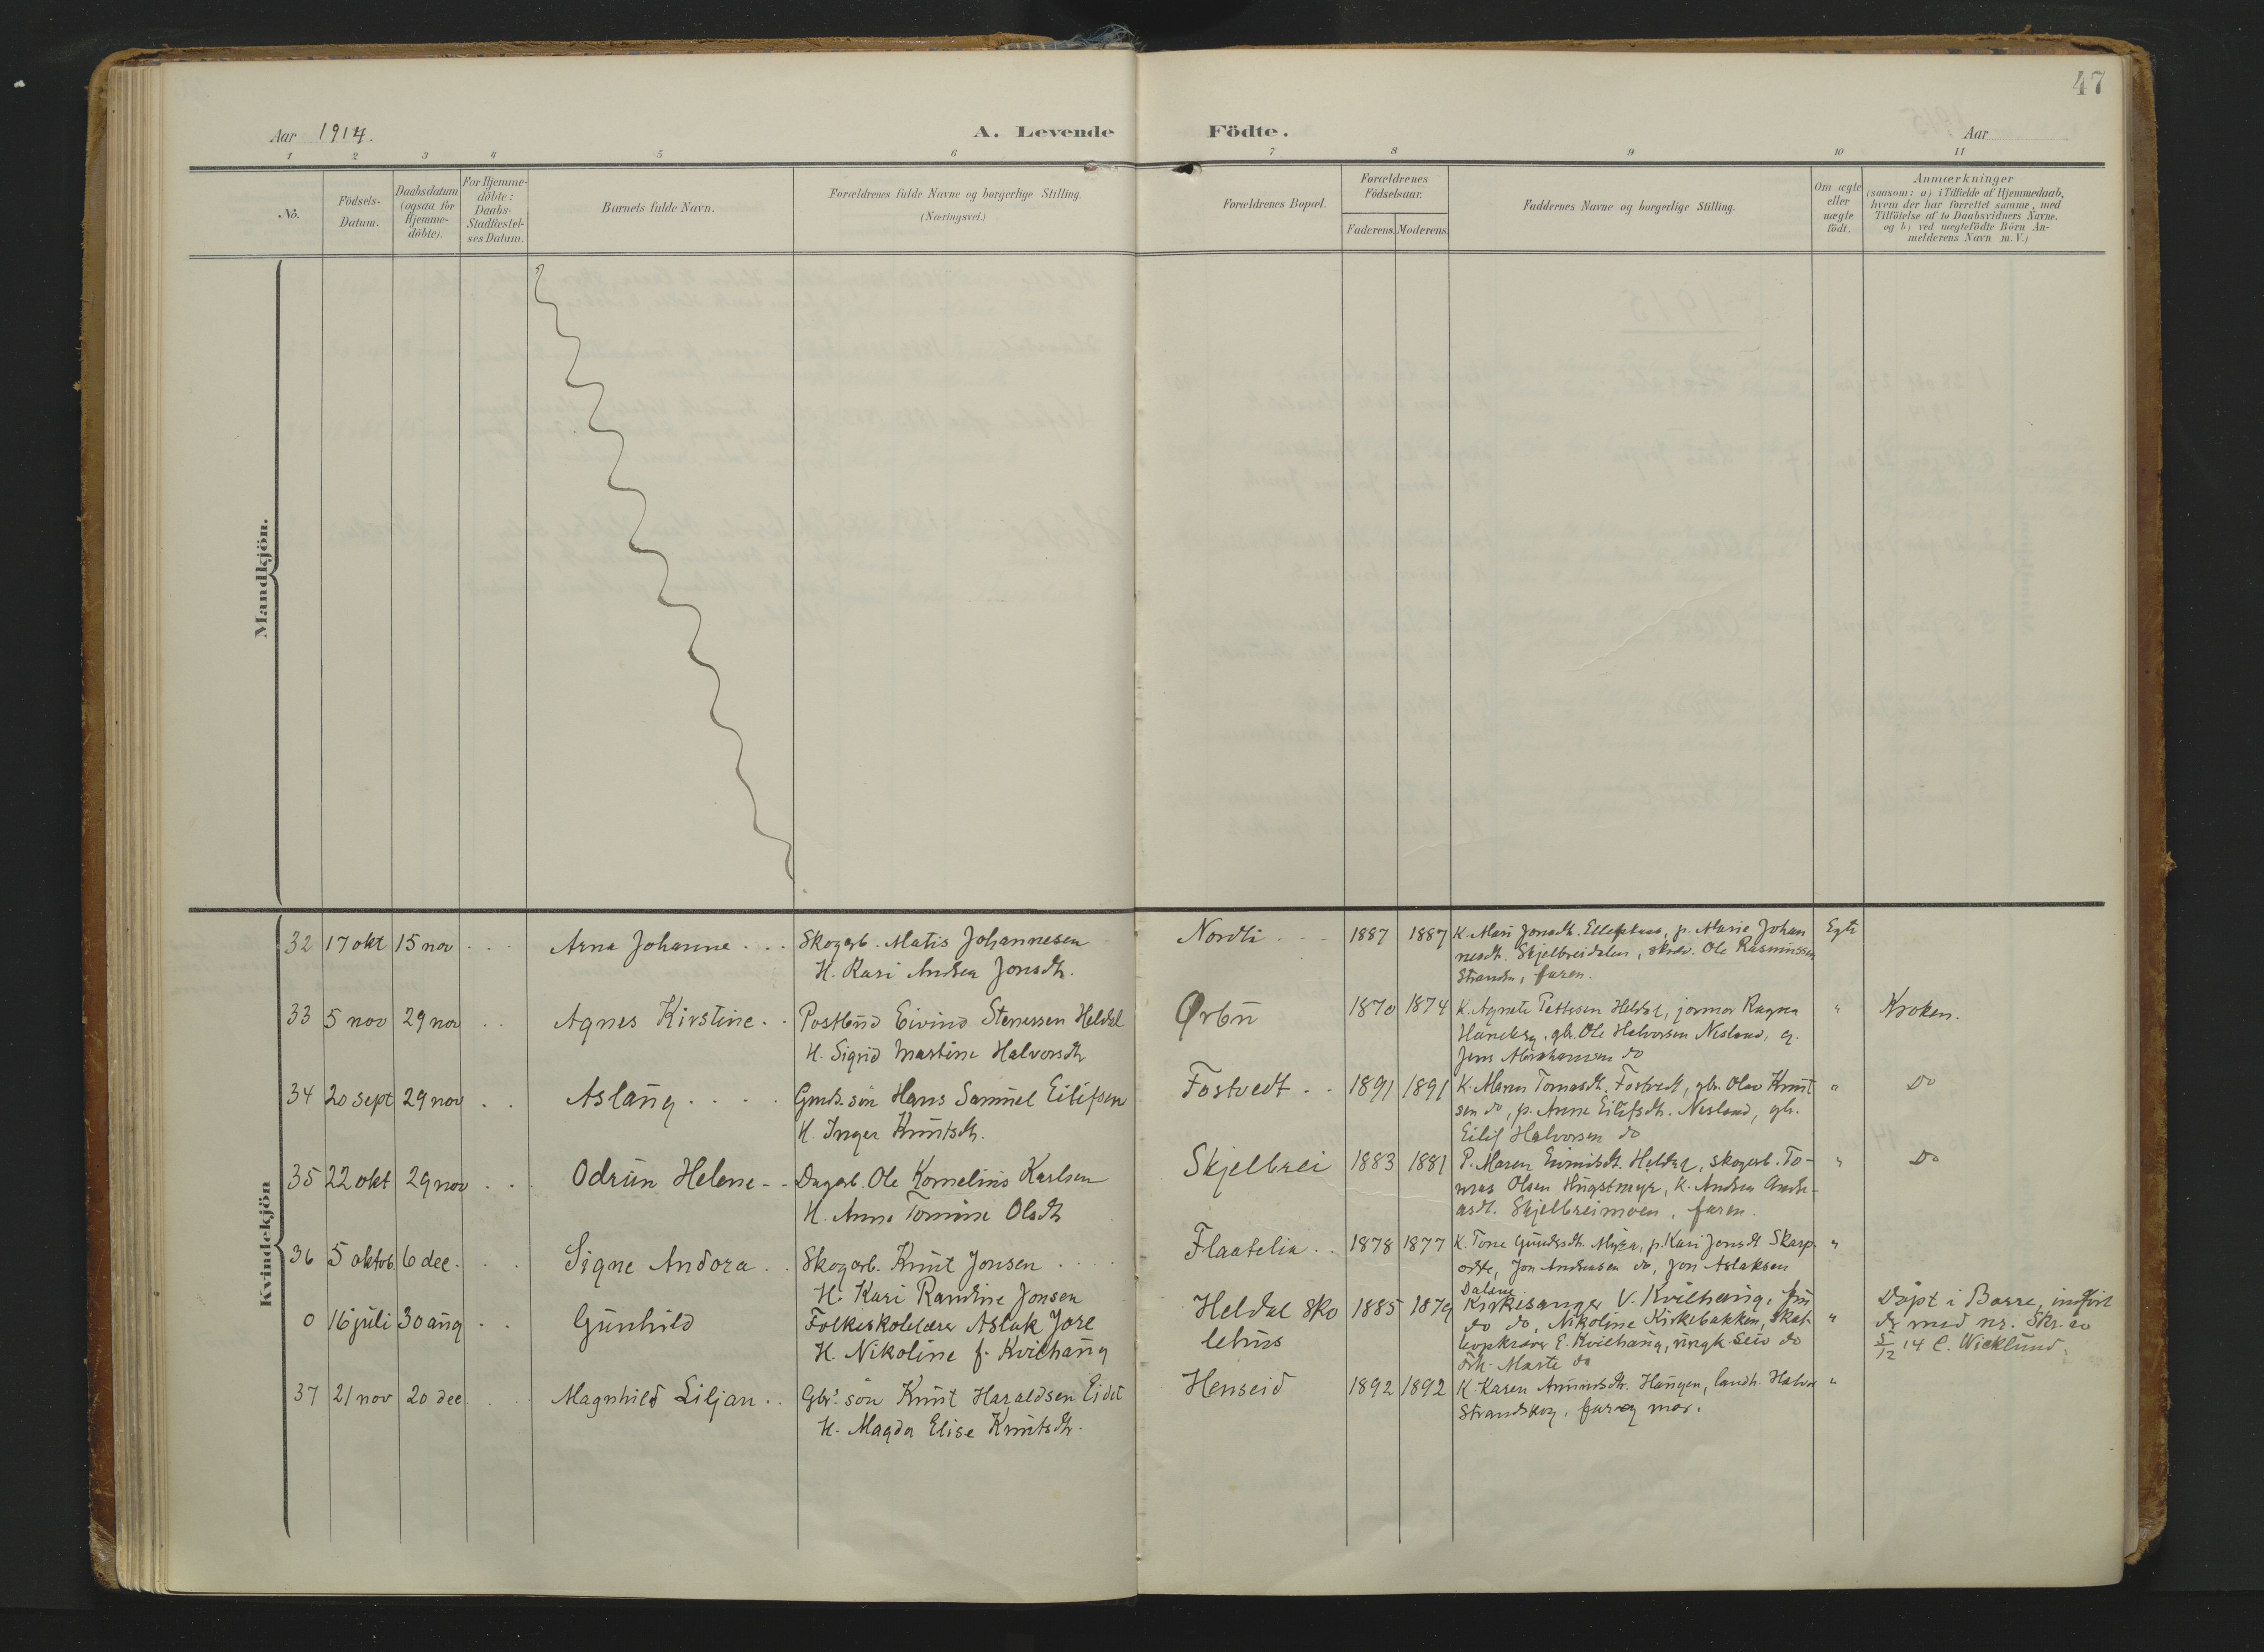 47
Aar 1914.
A. Levende Födte.
Aar
1 2 3 4 5 6 7 8 9 10 11
No.
Födsels-
Datum.
Daabsdatum
(ogsaa for
Hjemme-
döbte).
For Hjemme-
döbte:
Daabs-
Stadfæstel-
ses Datum.
Barnets fulde Navn.
Forældrenes fulde Navne og borgerlige Stilling.
(Næringsvei.)
Forældrenes Bopæl.
Forældrenes
Födselsaar.
Faderens. Moderens.
Faddernes Navne og borgerlige Stilling.
Om ægte
eller
uægte
födt.
Anmærkninger
(saasom: a) i Tilfælde af Hjemmedaab,
hvem der har forrettet samme, med
Tilföielse af to Daabsvidners Navne.
og b) ved uægtefödte Börn An-
melderens Navn m. V.)
Mandkjön.
Kvindekjön
32 17 okt 15 nov . . . Arna Johanne . . . Skogarb. Matis Johannesen
H. Kari Andrea Jonsdtr.
Nordli . . . 1887 1887 K. Mari Jonsdtr. Ellefsnes, p. Marie Johan
nesdtr. Skjelbreidalen, skræd. Ole Rasmussen
Stranda, faren.
Egte
33 5 nov 29 nov . . Agnes Kirstine . . Postbud Eivind Stenersen Heldal
H. Sigrid Martine Halvorsdtr
Ørbu 1870 1874 K. Agnete Pettersen Heldal, jormor Ragna
Haneberg, gbr. Ole Halvorsen Nesland, g.
Jens Abrahamsen do
" Kroken.
34 20 sept 29 nov . . Aslaug . . . . Gmds. søn Hans Samuel Eilifsen
H. Inger Knutsdtr.
Fostvedt . . 1891 1891 K. Maren Tomasdtr. Fostvedt, gbr. Olav Knut
sen do, p. Anne Eilefsdtr. Nesland, gbr.
Eilif Halvorsen do
" Do
35 22 okt 29 nov . . . Odrun Helene - - Dagarb. Ole Kornelius Karlsen
H. Anne Tomine Olsdtr
Skjelbrei 1883 1881 P. Maren Heldal, skogarb. To-
mas Olsen Hugstmyr, K. Andrea Andre-
asdt. Skjelbreimoen, faren.
" Do
36 5 oktob. 6 dec. . . Signe Andora . . Skogarb. Knut Jonsen . . . .
H. Kari Randine Jonsen
Flaatelia . . 1878 1877 K. Tone Gundersdtr. Myra, p. Kari Jonsdt Skarp-
odde, Jon Andreasen do, Jon Aslaksen
Dalane
"
0 16 juli 30 aug . . Gunhild Folkeskolelærer Aslak Jore
H. Nikoline f. Kvilhaug
Heldal sko
lehus
1885 1879 Kirkesanger V. Kvilhaug, fru
do do, Nikoline Kirkebakken, Skat-
teopkræver E. Kvilhaug, ungk. Seiv do
Frk. Marte do
" Døpt i Borre, indført
der med nr. Skr. av
5/12 14 C. Wicklund.
37 21 nov 20 dec . . . Magnhild Liljan . . Gbr.s søn Knut Haraldsen Eidet
H. Magda Elise Knutsdtr.
Henseid 1892 1892 K. Karen Amundsdtr. Haugen, landh. Halvor
Strandskog, far og mor.
"